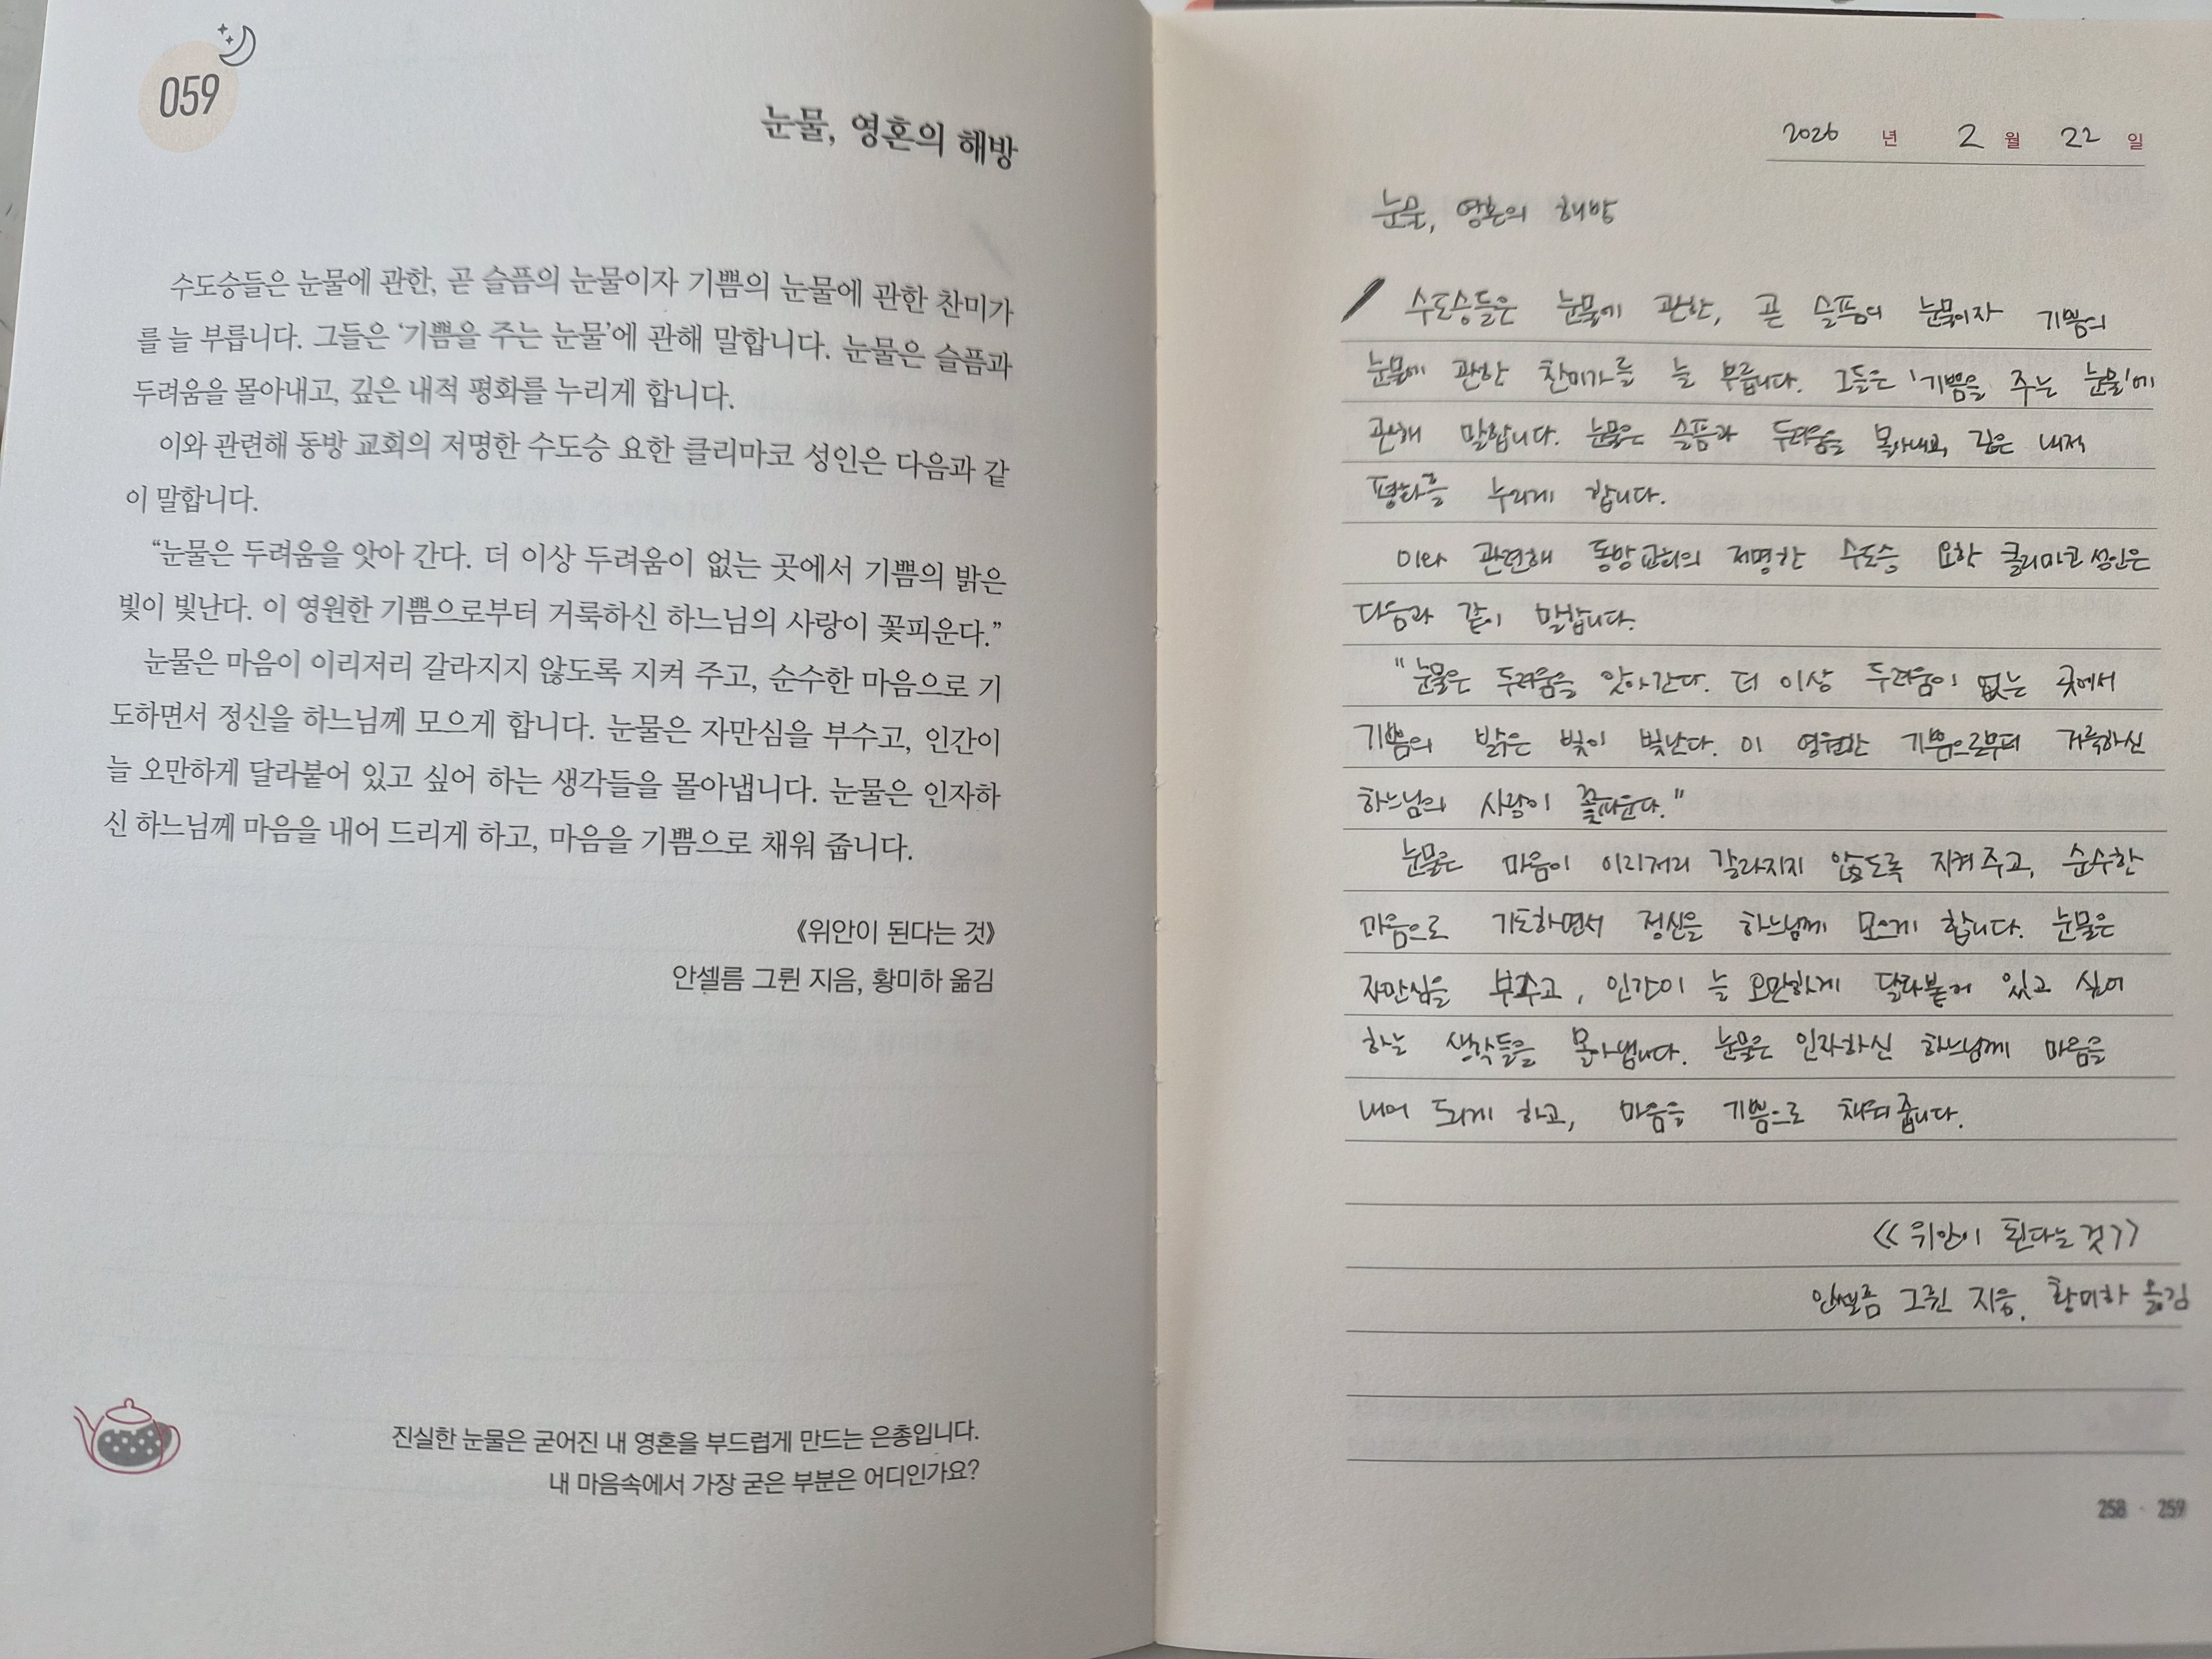 059
눈물, 영혼의 해방
수도승들은 눈물에 관한, 곧 슬픔의 눈물이자 기쁨의 눈물에 관한 찬미가
를 늘 부릅니다. 그들은 ‘기쁨을 주는 눈물’에 관해 말합니다. 눈물은 슬픔과
두려움을 몰아내고, 깊은 내적 평화를 누리게 합니다.
이와 관련해 동방 교회의 저명한 수도승 요한 클리마코 성인은 다음과 같
이 말합니다.
“눈물은 두려움을 앗아 간다. 더 이상 두려움이 없는 곳에서 기쁨의 밝은
빛이 빛난다. 이 영원한 기쁨으로부터 거룩하신 하느님의 사랑이 꽃피운다.”
눈물은 마음이 이리저리 갈라지지 않도록 지켜 주고, 순수한 마음으로 기
도하면서 정신을 하느님께 모으게 합니다. 눈물은 자만심을 부수고, 인간이
늘 오만하게 달라붙어 있고 싶어 하는 생각들을 몰아냅니다. 눈물은 인자하
신 하느님께 마음을 내어 드리게 하고, 마음을 기쁨으로 채워 줍니다.
《위안이 된다는 것》
안셀름 그륀 지음, 황미하 옮김
진실한 눈물은 굳어진 내 영혼을 부드럽게 만드는 은총입니다.
내 마음속에서 가장 굳은 부분은 어디인가요?
2026 년 2 월 22 일
눈물, 영혼의 해방
수도승들은 눈물에 관한, 곧 슬픔의 눈물이자 기쁨의
눈물에 관한 찬미가를 늘 부릅니다. 그들은 '기쁨을 주는 눈물'에
관해 말합니다. 눈물은 슬픔과 두려움을 몰아내고, 깊은 내적
평화를 누리게 합니다.
이와 관련해 동방교회의 저명한 수도승 요한 클리마코 성인은
다음과 같이 말합니다.
"눈물은 두려움을 앗아간다. 더 이상 두려움이 없는 곳에서
기쁨의 밝은 빛이 빛난다. 이 영원한 기쁨으로부터 거룩하신
하느님의 사랑이 꽃피운다."
눈물은 마음이 이리저리 갈라지지 않도록 지켜주고, 순수한
마음으로 기도하면서 정신을 하느님께 모으게 합니다. 눈물은
자만심을 부수고, 인간이 늘 오만하게 달라붙어 있고 싶어
하는 생각들을 몰아냅니다. 눈물은 인자하신 하느님께 마음을
내어 드리게 하고, 마음을 기쁨으로 채워줍니다.
<<위안이 된다는 것>>
안셀름 그륀 지음, 황미하 옮김
258 · 259